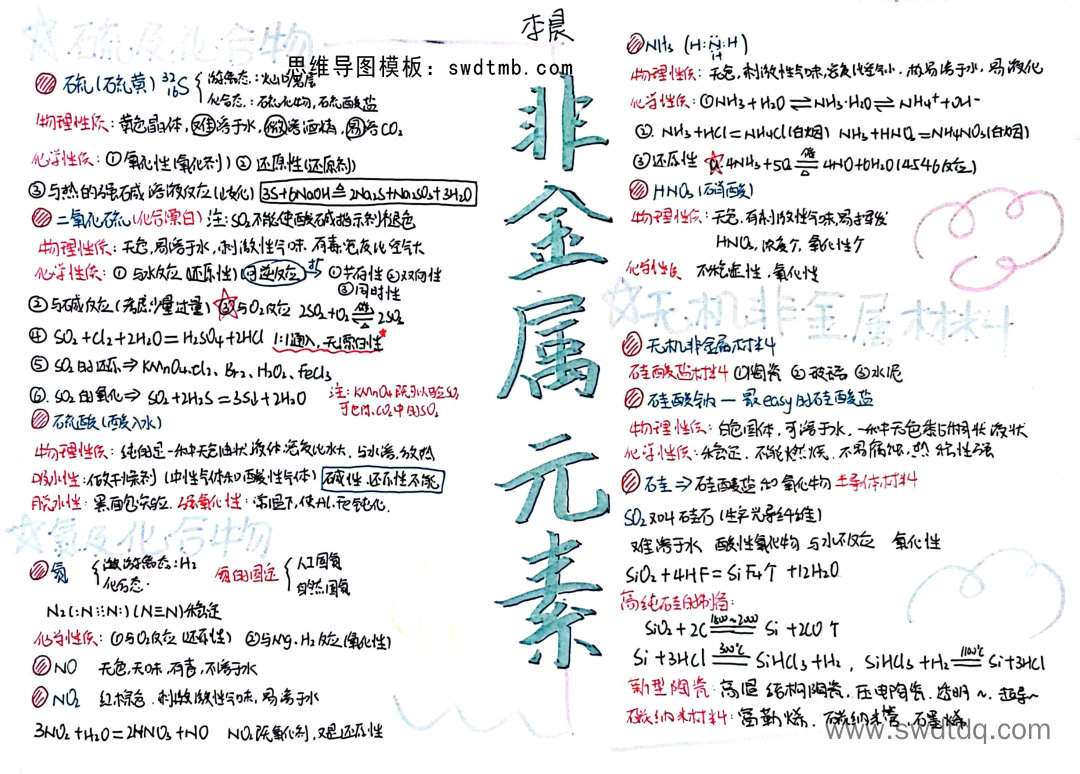 李晨
思维导图模板：swdtmb.com
非金属元素
☆硫及化合物
硫(硫黄) ³²₁₆S { 游离态：火山喷层
化合态：硫化物,硫酸盐
物理性质：黄色晶体,难溶于水,微溶酒精,易溶CO2
化学性质：①氧化性(氧化剂) ②还原性(还原剂)
③与热的强碱溶液反应(歧化) 3S+6NaOH≜2Na2S+Na2SO3+3H2O
二氧化硫(化合漂白) 注：SO2不能使酸碱指示剂褪色
物理性质：无色,易溶于水,刺激性气味,有毒,密度比空气大
化学性质：①与水反应(还原性)(可逆反应) ①共存性 ②双向性
③同时性
②与碱反应(考虑少量过量) ③与O2反应 2SO2+O2⇌2SO3
④ SO2+Cl2+2H2O=H2SO4+2HCl 1:1通入,无漂白性
⑤ SO2的还原⇒KMnO4,Cl2,Br2,H2O2,FeCl3
⑥.SO2的氧化⇒SO2+2H2S=3S↓+2H2O
注：KMnO4既可以验SO2
可也除CO2中的SO2
硫酸(酸入水)
物理性质：纯的是一种无色油状液体,密度比水大,与水溶,放热
吸水性：作干燥剂(中性气体和酸性气体) 碱性,还原性不能
脱水性：黑面包实验. 强氧化性：常温下,使Al,Fe钝化.
☆氮及化合物
氮 { 游离态：N2
化合态：
氮的固定 { 人工固氮
自然固氮
N2(:N⋮⋮N:)(N≡N)稳定
化学性质：①与O2反应(还原性) ②与Mg,H2反应(氧化性)
NO 无色,无味,有毒,不溶于水
NO2 红棕色.刺激性气味,易溶于水
3NO2+H2O=2HNO3+NO NO2既氧化剂,又是还原性
NH3 (H:N:H)
H
物理性质：无色,刺激性气味,密度比空气小,极易溶于水,易液化
化学性质：①NH3+H2O⇌NH3·H2O⇌NH4⁺+OH⁻
②. NH3+HCl=NH4Cl(白烟) NH3+HNO3=NH4NO3(白烟)
③还原性 ☆4NH3+5O2≜4NO+6H2O(4546反应)
HNO3(硝酸)
物理性质：无色,有刺激性气味,易挥发
HNO3,浓度↑,氧化性↑
化学性质 不稳定性,氧化性
☆无机非金属材料
无机非金属材料
硅酸盐材料 ①陶瓷 ②玻璃 ③水泥
硅酸钠—最easy的硅酸盐
物理性质：白色固体,可溶于水,一种无色黏稠状液状
化学性质：稳定,不能燃烧,不易腐蚀,热稳性强
硅⇒硅酸盐和氧化物 半导体材料
SO2又叫硅石(生产光导纤维)
难溶于水 酸性氧化物 与水不反应 氧化性
SiO2+4HF=SiF4↑+12H2O
高纯硅的制备：
SiO2+2C=(1800~2000)Si+2CO↑
Si+3HCl=(300℃)SiHCl3+H2, SiHCl3+H2=(1100℃)Si+3HCl
新型陶瓷：高温结构陶瓷,压电陶瓷,透明~,超导~
碳纳米材料：富勒烯,碳纳米管,石墨烯
www.swdtdq.com